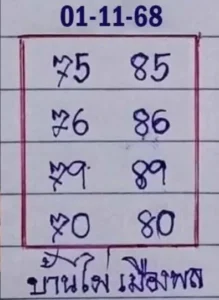 01-11-68
75 85
76 86
79 89
70 80
บ้านไผ่ เมืองพล